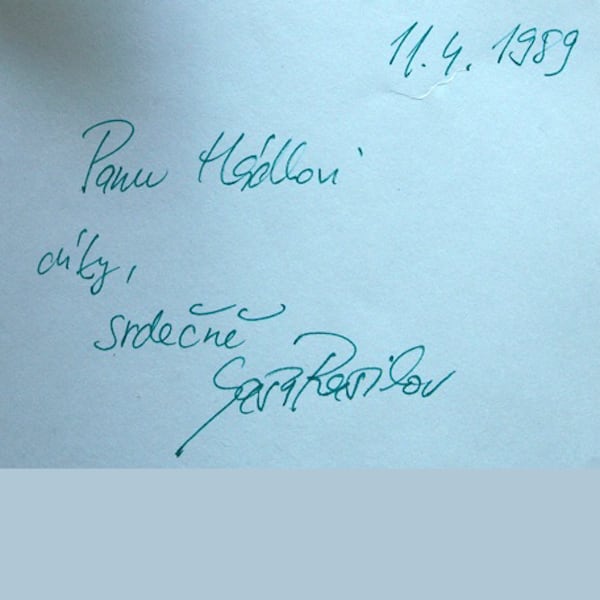 11.4. 1989
Panu Hádlovi
díky,
srdečně
Saša Rašilov